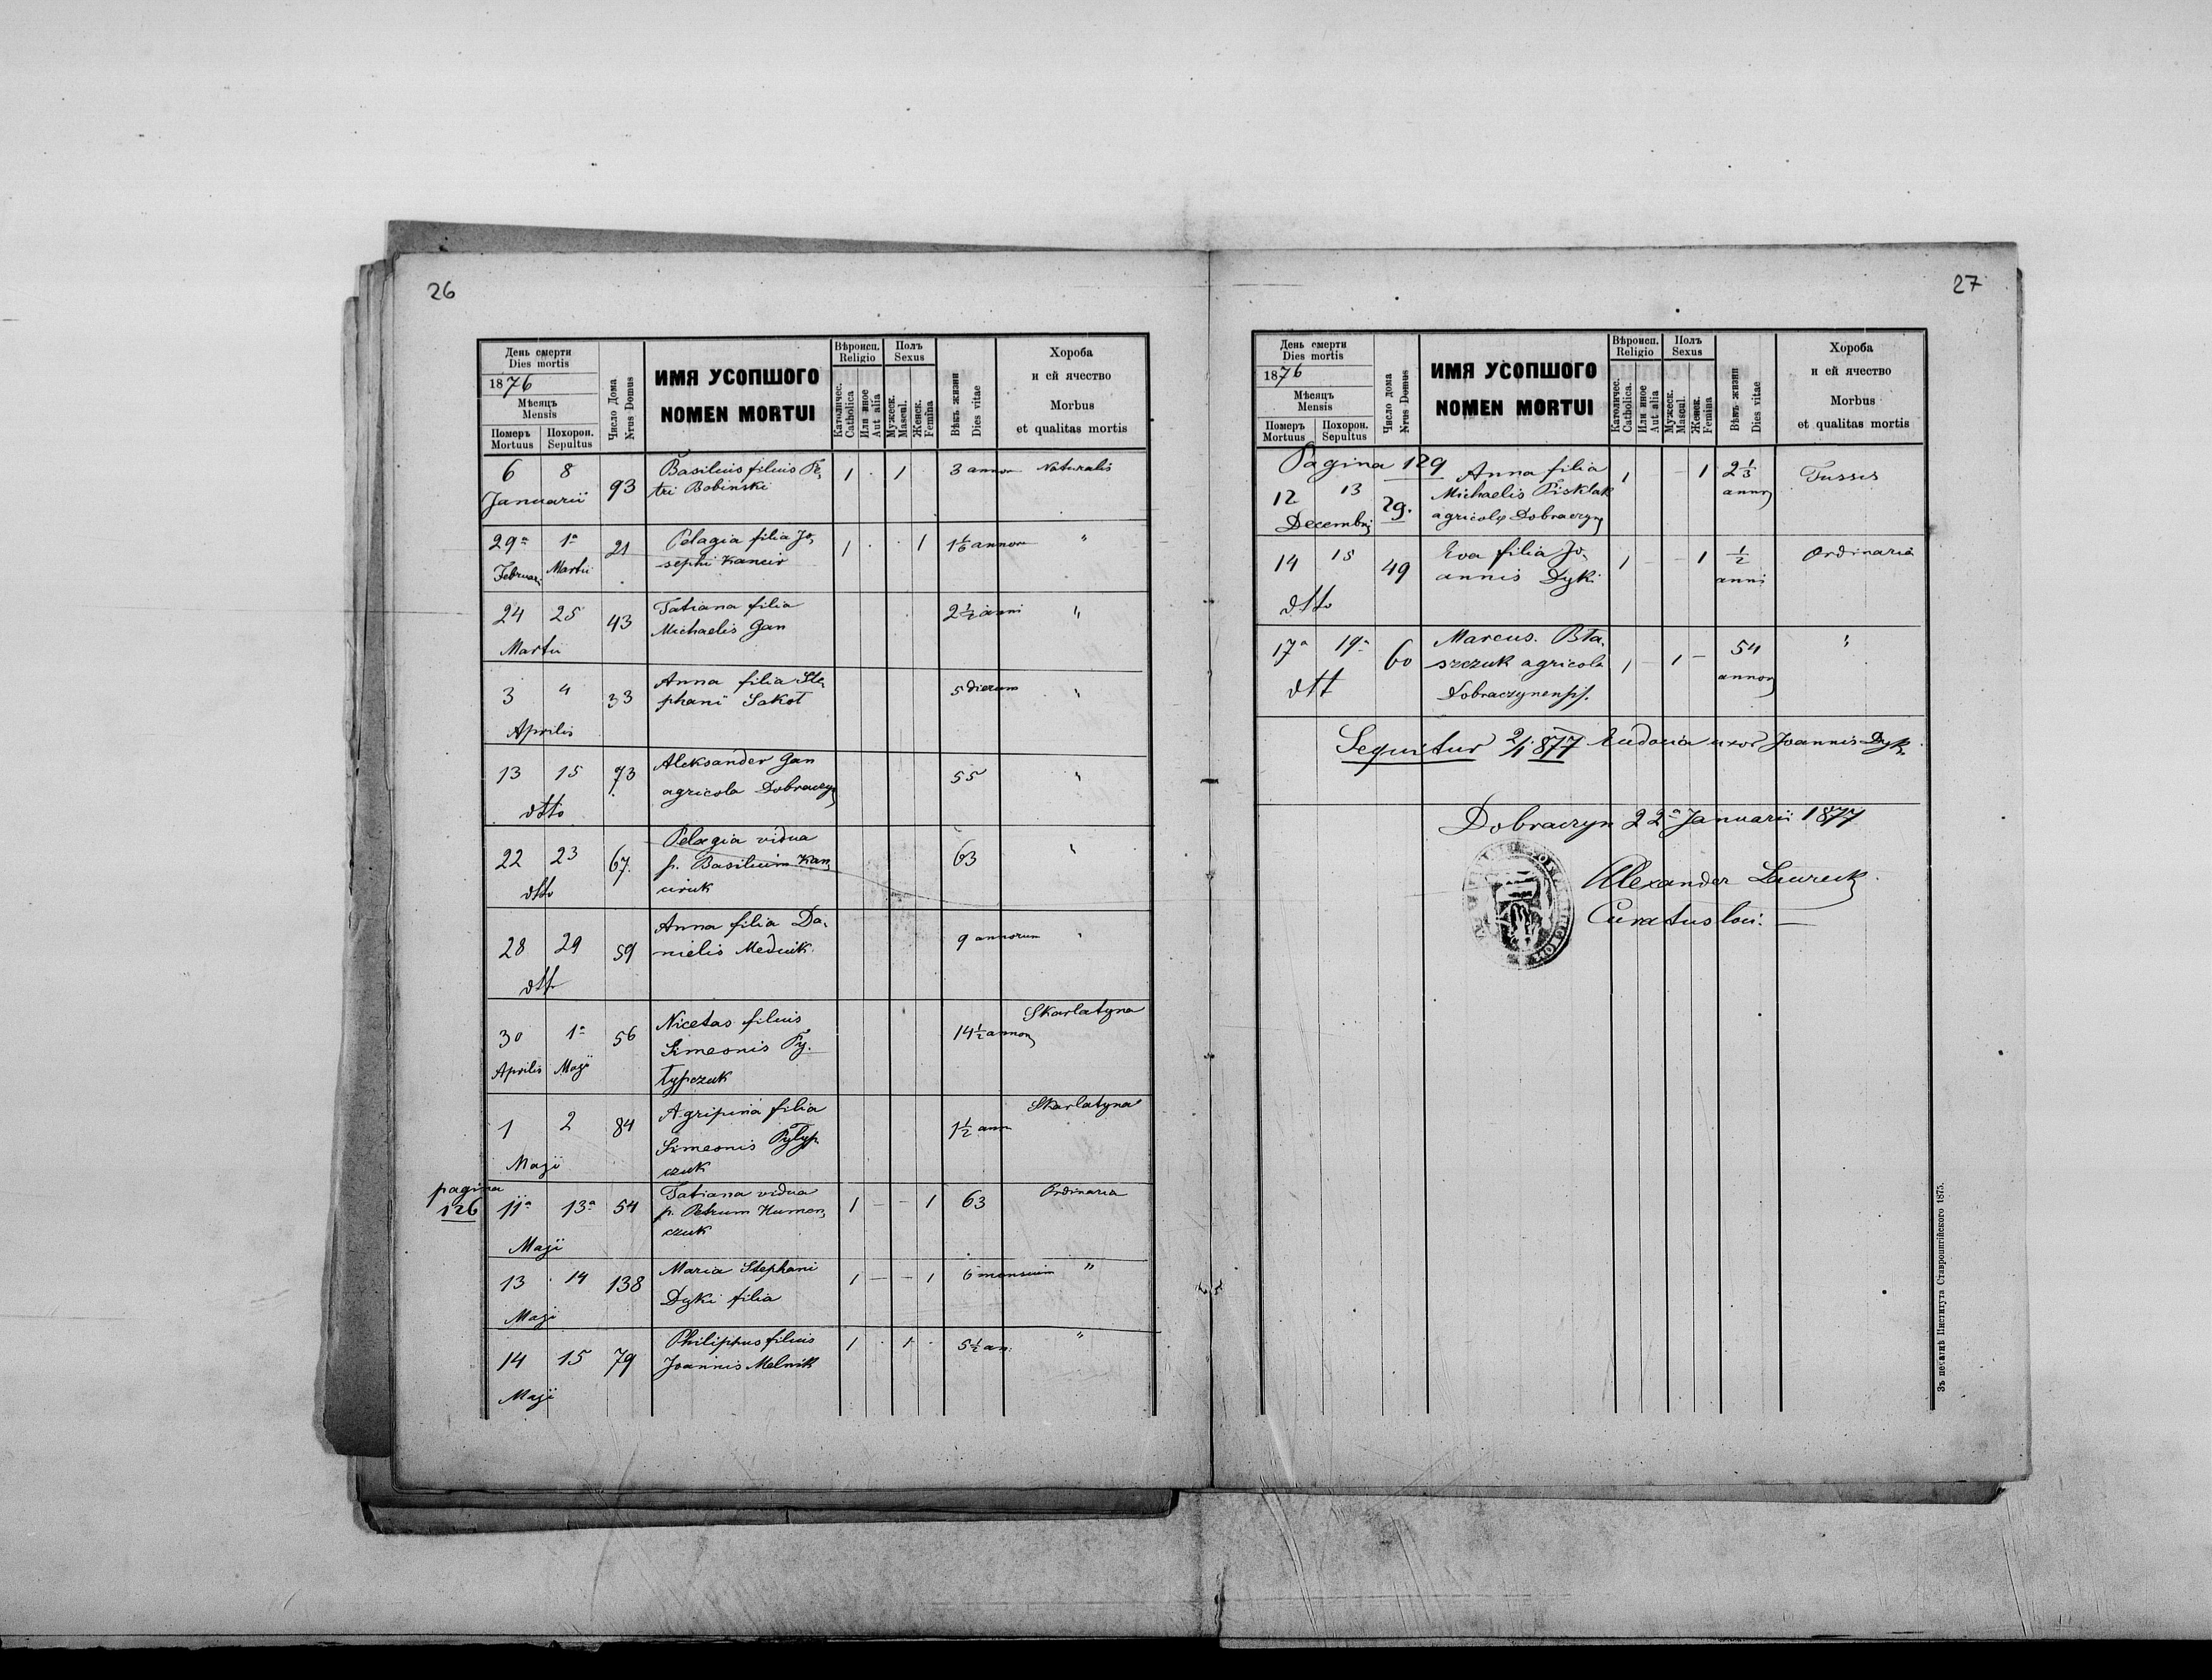 26
День смерти
Dies mortis
1876
Мѣсяцъ
Mensis
Померъ
Mortuus
Похорон.
Sepultus
Число Дома
Nrus Domus
ИМЯ УСОПШОГО
NOMEN MORTUI
Вѣроисп.
Religio
Католичес.
Catholica
Или иное
Aut alia
Полъ
Sexus
Мужеск.
Mascul.
Женск.
Femina
Вѣкъ жизни
Dies vitae
Хороба
и ей ячество
Morbus
et qualitas mortis
6 8 93 Basilius filius Pe, 1 . 1 3 annor Naturalis
Januarii tri Bobinski
29a 1a 21 Pelagia filia Jo, 1 . . 1 1 1/6 annor "
Februari Martii sephi Kancir
24 25 43 Tatiana filia 2 1/2 anni "
Martii Michaelis Gan
3 4 33 Anna filia Ste, 5 dierum "
Aprilis phani Sakot
13 15 73 Aleksander Gan 55 "
dtto agricola Dobraczyn
22 23 67. Pelagia vidua 63 "
dtto p. Basilium Kan,
ciruk
28 29 59 Anna filia Da, 9 annorum "
dtto nielis Medwik
30 1a 56 Nicetas filius 14 1/2 annor Skarlatyna
Aprilis Maji Simeonis Py,
lypczuk
1 2 84 Agripina filia 1 1/2 ann Skarlatyna
Maji Simeonis Pylyp
czuk
pagina
126
11a 13a 54 Tatiana vidua 1 – – 1 63 Ordinaria
Maji p. Petrum Humen,
czuk
13 14 138 Maria Stephani 1 – – 1 6 mensium "
Maji Dyki filia
14 15 79 Philippus filius 1 . 1 . 5 1/2 an. "
Maji Joannis Melnik
27
День смерти
Dies mortis
1876
Мѣсяцъ
Mensis
Померъ
Mortuus
Похорон.
Sepultus
Число дома
Nrus Domus
ИМЯ УСОПШОГО
NOMEN MORTUI
Вѣроисп.
Religio
Католичес.
Catholica.
Или иное
Aut alia
Полъ
Sexus
Мужеск.
Mascul.
Женск.
Femina
Вѣкъ жизни
Dies vitae
Хороба
и ей ячество
Morbus
et qualitas mortis
Pagina 129
12 13 29. Anna filia 1 – 1 2 1/3 Tussis
Decembri Michaelis Pisklak annor
agricolae Dobraczyn
14 15 49 Eva filia Jo, 1 – – 1 1/2 Ordinaria
dtto annis Dyki anni
17a 19a 60 Marcus. Bła, 1 – 1 – 54 "
dtt szczuk agricola annor
Dobraczynensis.
Sequitur 2/1 877 Eudocia uxor Joannis Dyki.
Dobraczyn 22a Januarii 1877
Alexander
Curatus loci. –
Зъ печатнѣ Института Ставропигійского 1875.